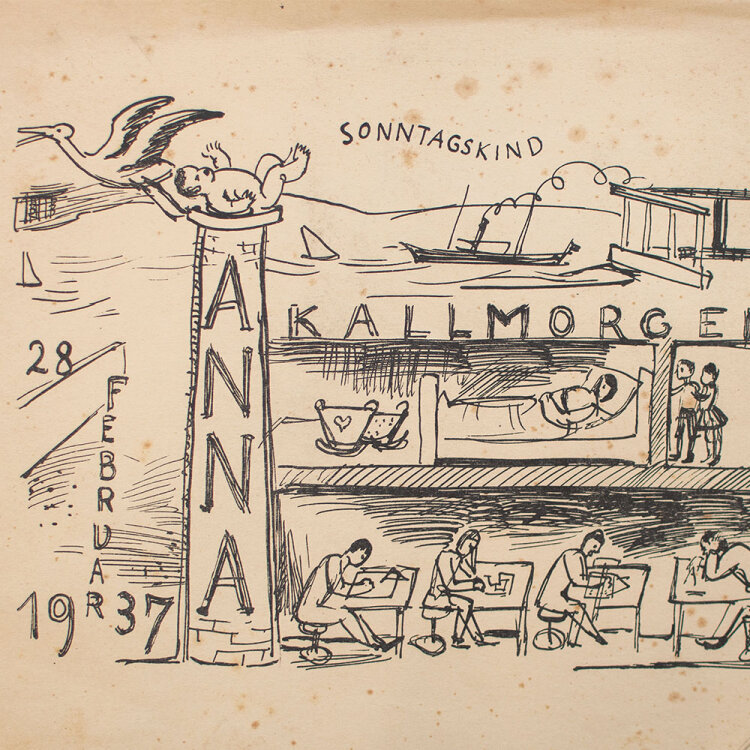 SONNTAGSKIND
ANNA
KALLMORGE
28
FEBRUAR
1937